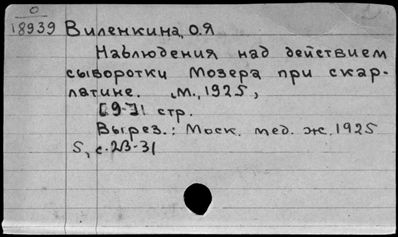 О
18939 Виленкина, О.Я
Наблюдения над действием
сыворотки Мозера при скар-
латине. М., 1925,
[9] стр.
Вырез.: Моск. мед. ж. 1925
5, с. 23-31